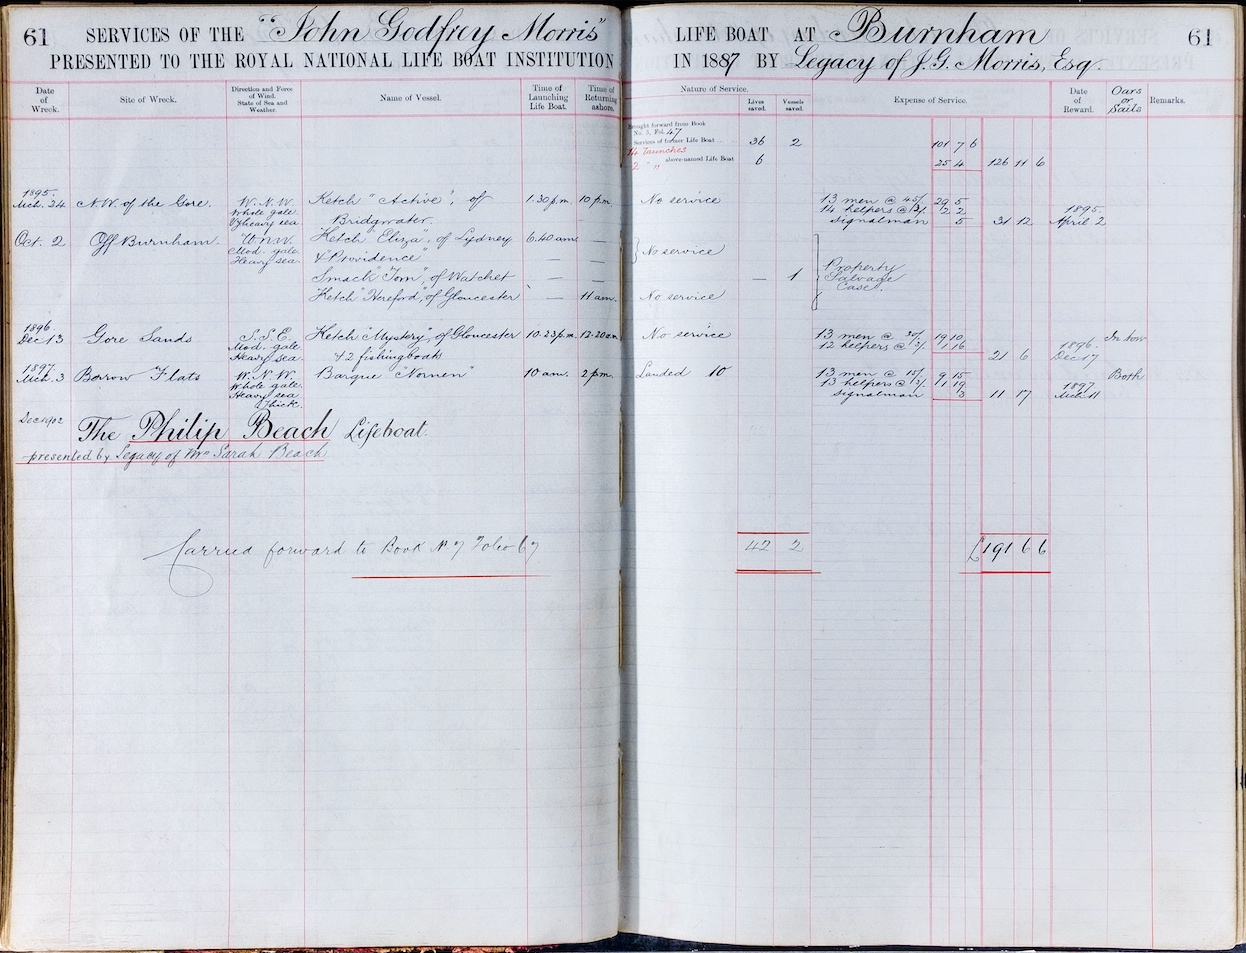 61 SERVICES OF THE "John Godfrey Morris" LIFE BOAT, AT Burnham 61
PRESENTED TO THE ROYAL NATIONAL LIFE BOAT INSTITUTION IN 1887 BY Legacy of J.G. Morris, Esq.
Date of Wreck. Site of Wreck. Direction and Force of Wind. State of Sea and Weather. Name of Vessel. Time of Launching Life Boat. Time of Returning ashore. Nature of Service. Lives saved. Vessels saved. Expense of Service. Date of Reward. Oars or Sails Remarks.
Brought forward from Book
No. 5, Fol. 47
Services of former Life Boat 36 2 101 7 6
14 launches
2 " " above-named Life Boat 6 25 4 126 11 6
1895.
Mch. 24 N.W. of the Gore. W.N.W. Ketch "Active", of 1.30 p.m. 10 p.m. No service 13 men @ 45/. 29 5
Whole gale 14 helpers @ 3/. 2 2 1895.
V. heavy sea Bridgwater. Signalman 5 31 12 April 2
Oct. 2 Off Burnham. W.N.W. Ketch "Eliza", of Lydney 6.40 am —
Mod. gale & "Providence" — — No service
Heavy sea
Smack "Tom", of Watchet — — — 1 Property Salvage Case.
Ketch "Hereford", of Gloucester — 11 am. No service
1896.
Dec 13 Gore Sands S.S.E. Ketch "Mystery", of Gloucester 10.23 p.m. 12.20 am No service 13 men @ 30/. 19 10 In tow
Mod. gale 12 helpers @ 3/. 1 16 1896.
Heavy sea & 2 fishing boats 21 6 Dec 17
1897.
Mch. 3 Berrow Flats W.N.W. Barque "Nornen" 10 am. 2 pm. Landed 10 13 men @ 15/. 9 15 Both
Whole gale 13 helpers @ 3/. 1 19 1897.
Heavy sea Signalman 3 11 17 Mch 11
Thick.
Dec 1902 The Philip Beach Lifeboat.
presented by Legacy of Mrs Sarah Beach
Carried forward to Book No 7 Folio 67 42 2 £191 6 6